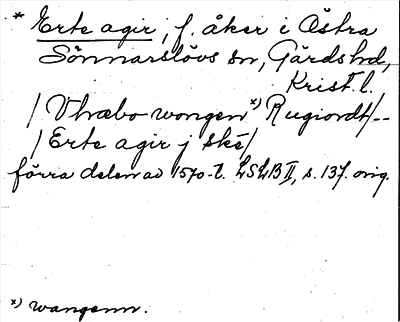 * Erte agir, f. åker i Östra
Sönnarslövs sn, Gärds hd,
Krist. l.
/ Vlræbo wongen *) Rugiordt/--
/ Erte agir j ske/
förra delen av 1570-t. LSLB II, s. 137. orig.
*) wangenn.